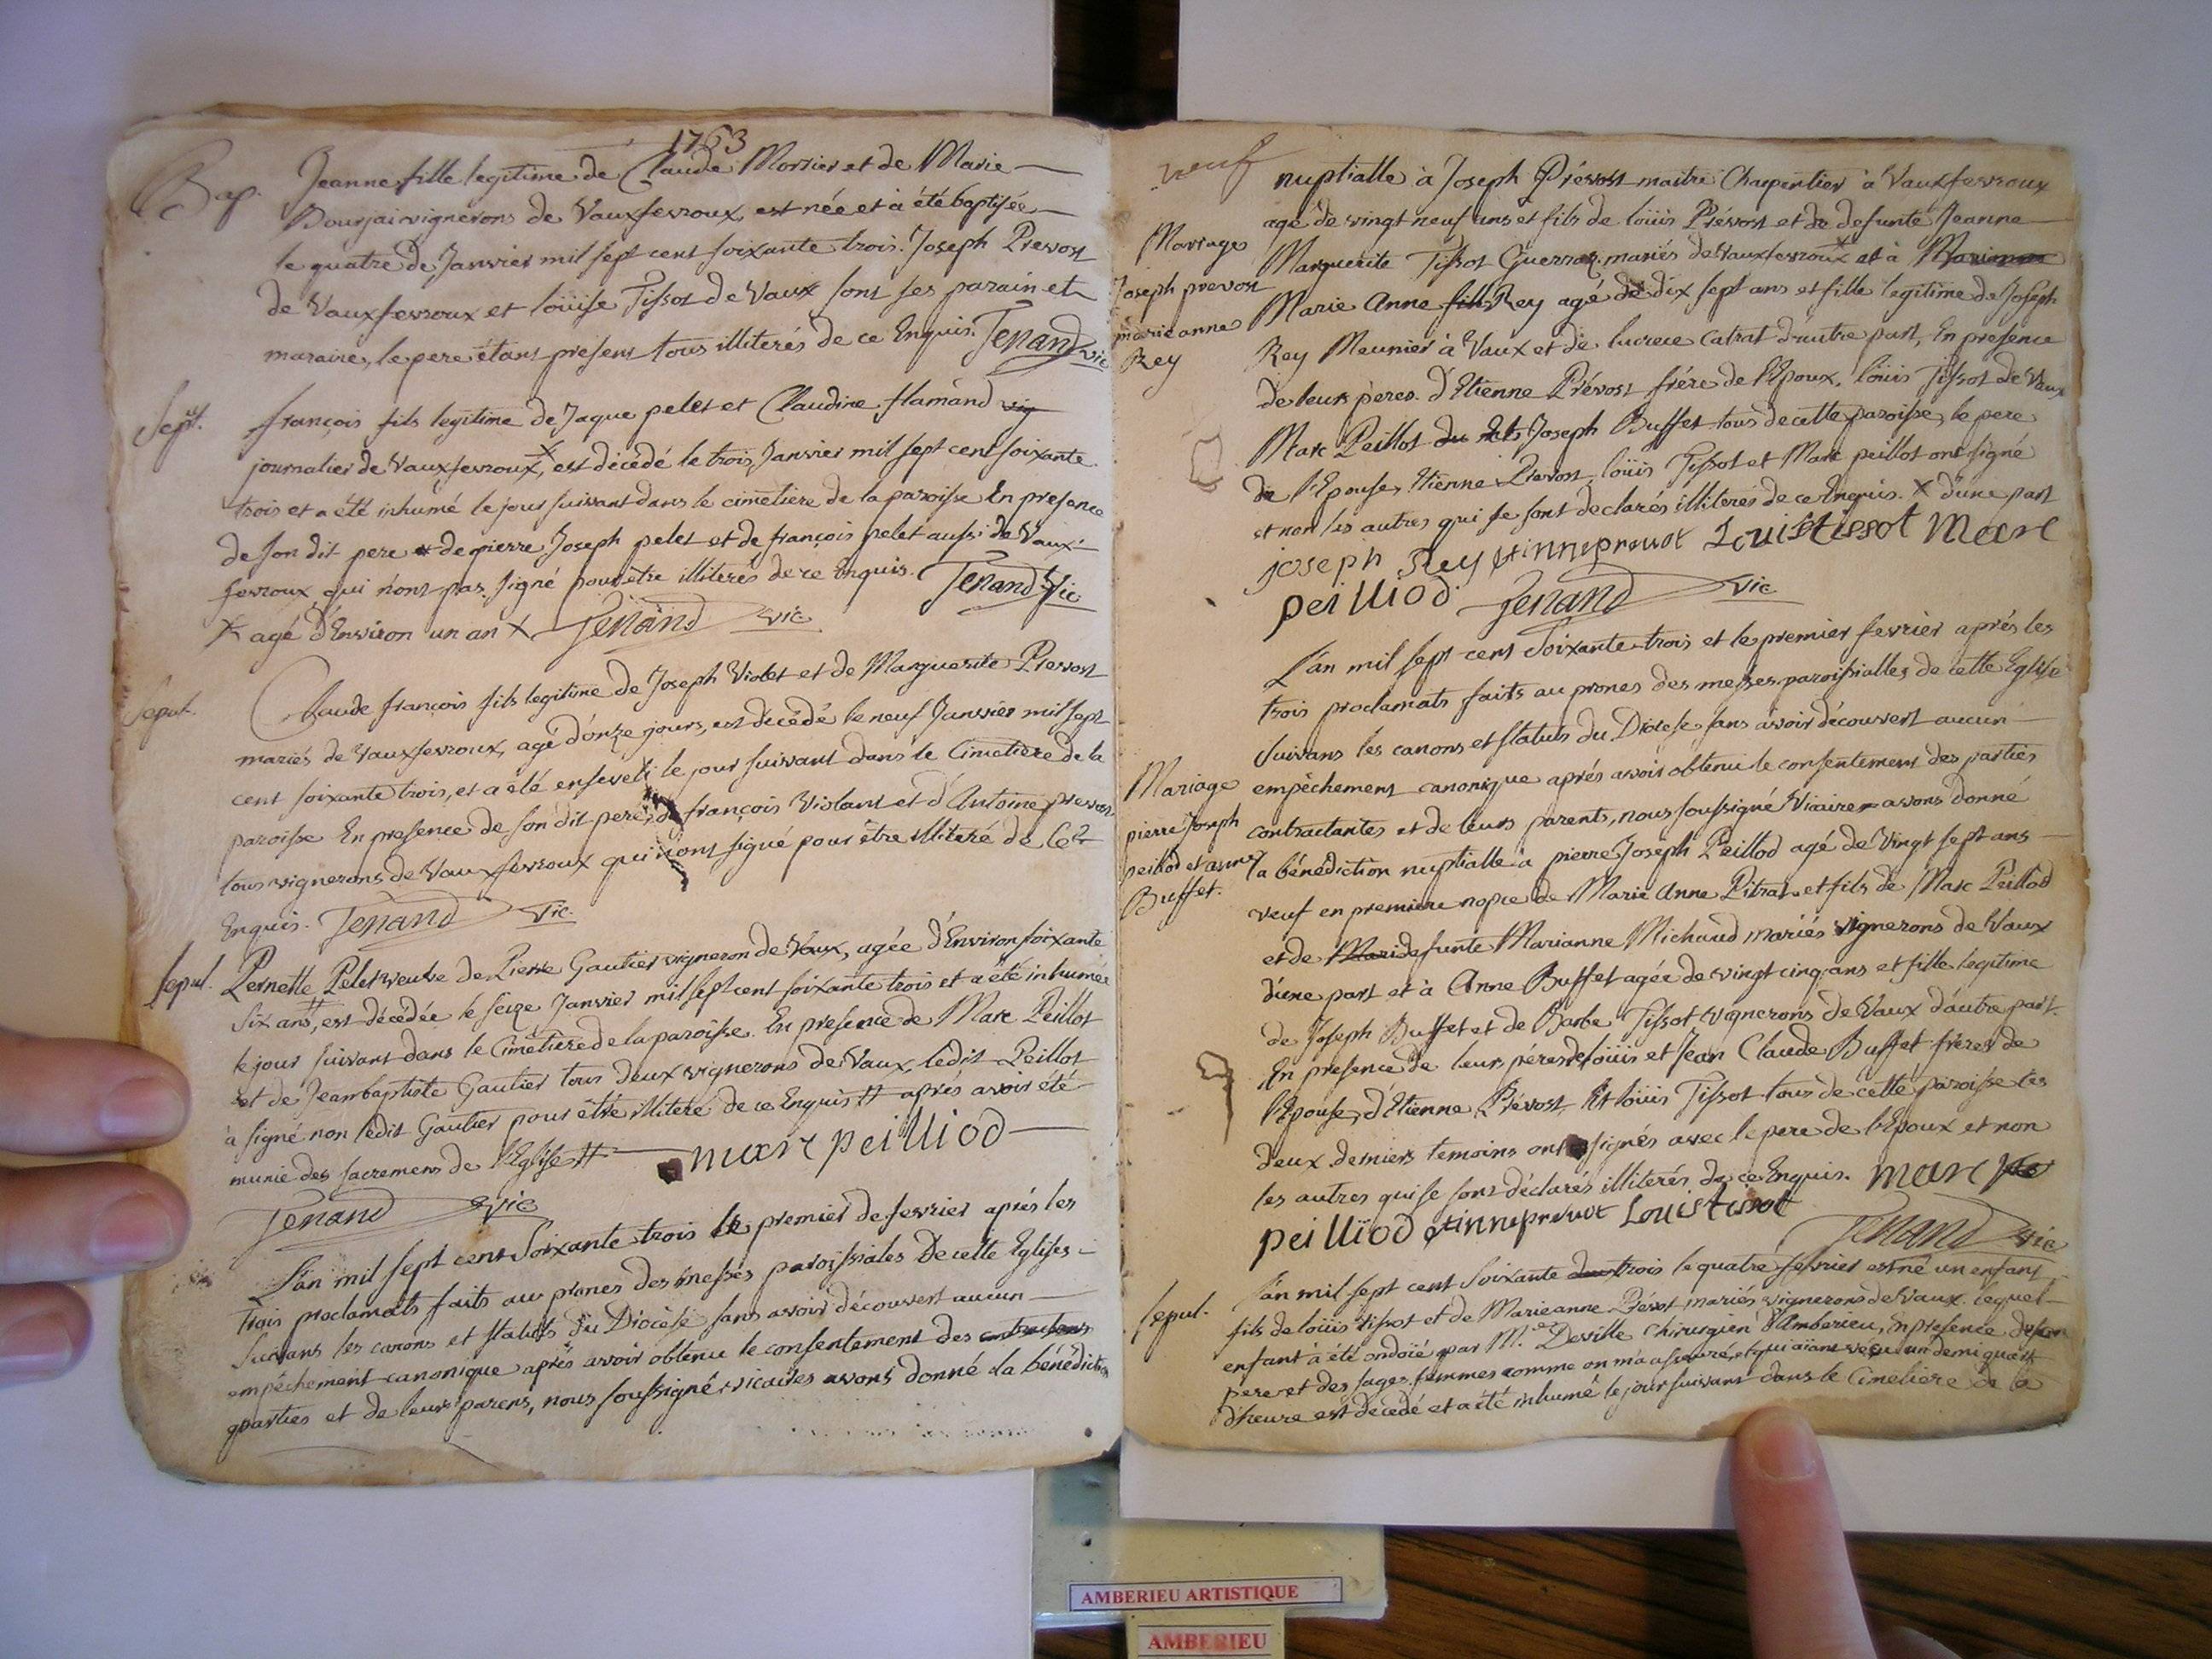 1763
Bap. Jeanne fille legitime de Claude Morrier et de Marie
Bourjai vignerons de Vauxfevroux, est née et à été baptisée
le quatre de Janvier mil sept cent soixante trois. Joseph Prevost
de Vauxfevroux et loüise Tissot de Vaux sont ses parain et
maraine, le pere étant present tous illiterés de ce Enquis. Tenand vic
Sept. françois fils legitime de Jaque pelet et Claudine flamand vig
journalier de Vauxfevroux, X est décédé le trois Janvier mil sept cent soixante
trois et a été inhumé le jour suivant dans le cimetiere de la paroisse En presence
de son dit pere de pierre Joseph pelet et de françois pelet aussi de Vaux-
fevroux qui n'ont pas signé pour être illiterés de ce Enquis. Tenand Vic
X agé d'Environ un an X Tenand vic
Sepul. Claude françois fils legitime de Joseph Violet et de Marguerite Prevost
mariés de Vauxfevroux, agé d'onze jours, est décédé le neuf Janvier mil sept
cent soixante trois, et a été enseveli le jour suivant dans le Cimetiere de la
paroisse En presence de son dit pere, de françois Violant et d'Antoine prevost
tous vignerons de Vauxfevroux qui n'ont signé pour être illiteré de ce
Enquis. Tenand Vic.
Sepul. Pernette Pelet veuve de Pierre Gautier vigneron de Vaux, agée d'Environ soixante
six ans #, est décédée le seize Janvier mil sept cent soixante trois et a été inhumée
le jour suivant dans le Cimetiere de la paroisse. En presence de Marc Peillot
et de Jeambaptiste Gautier tous deux vignerons de Vaux, ledit Peillot
à signé non ledit Gautier pour être illiteré de ce Enquis # aprés avoir été
munie des sacremens de l'Eglise # marc peilliod
Tenand vic
L'an mil sept cent Soixante trois le premier de fevrier aprés les
trois proclamats faits au prones des messes paroissiales De cette Eglises
suivans les canons et statuts du Diocèse sans avoir découvert aucun
empêchement canonique aprés avoir obtenu le consentement des contractans
parties et de leurs parens, nous soussigné vicaires avons donné la bénédiction
neuf
nuptialle à Joseph Prévost maitre Charpentier à Vauxfevroux
agé de vingt neuf ans et fils de loüis Prévost et de defunte Jeanne
Mariage
Joseph prevost
marie anne
Rey
Marguerite Tissot Guerraz mariés de Vauxfevroux X et à Marianne
Marie Anne fille Rey agé de dix sept ans et fille legitime de Joseph
Rey Meunier à Vaux et de lucrece Catrat d'autre part, En présence
de leurs pères. d'Etienne Prévost frére de l'Epoux, loüis Tissot de Vaux
Marc Peillot Joseph Buffet tous de cette paroisse, le pere
de l'Epouse, Etienne Prevost, loüis Tissot et Marc peillot ont signé
et non les autres qui se sont declarés illiterés de ce Enquis. X d'une part
joseph Rey etinneprevot Louistissot Marc
peilliod Tenand vic
L'an mil sept cent Soixante trois et le premier fevrier aprés les
trois proclamats faits au prones des messes paroissialles de cette Eglise
suivans les canons et statuts du Diocese sans avoir découvert aucun
Mariage
pierre Joseph
peillod et anne
Buffet.
empêchement canonique aprés avoir obtenu le consentement des parties
contractantes et de leurs parents, nous soussigné Viaire avons donné
la bénédiction nuptialle à pierre Joseph Peillod agé de Vingt sept ans
veuf en premiere nopce de Marie Anne Pitrat et fils de Marc Peillod
et de Mari defunte Marianne Michaud mariés vignerons de Vaux
d'une part et à Anne Buffet agée de vingt cinq ans et fille legitime
de Joseph Buffet et de Barbe Tissot vignerons de Vaux d'autre part.
En presence de leurs péres de loüis et Jean Claude Buffet freres de
l'Epouse, d'Etienne Prévost, Et loüis Tissot tous de cette paroisse les
deux derniers temoins ont signés avec le pere de l'Epoux et non
les autres qui se sont déclarés illiterés de ce Enquis. marc pe
peilliod etinneprevot Louistissot
Tenand vic
Sepul. L'an mil sept cent Soixante deux trois le quatre fevrier est né un enfant
fils de loüis Tissot et de Marieanne Prévost mariés vignerons de Vaux. lequel
enfant à été ondoié par Mr. Deville Chirurgien d'Amberieu, En presence de son
pere et des sages femmes comme on m'a assuré, et qui aiant vécu un demi quart
d'heure est décédé et a été inhumé le jour suivant dans le Cimetiere de la
AMBERIEU ARTISTIQUE
AMBERIEU